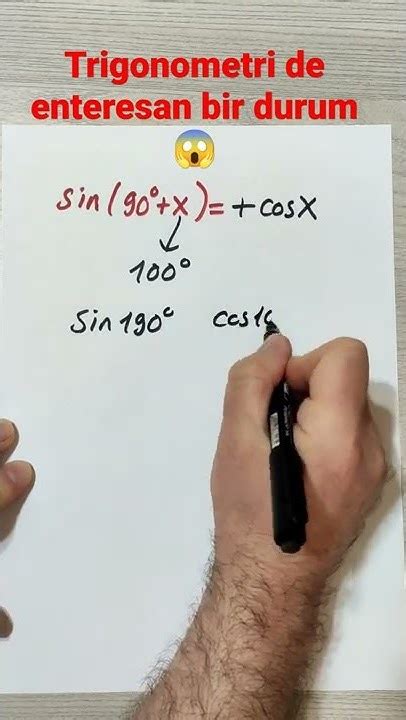 Trigonometri de
enteresan bir durum
😱
sin(90°+x)=+cosX
↓
100°
Sin190° cos10